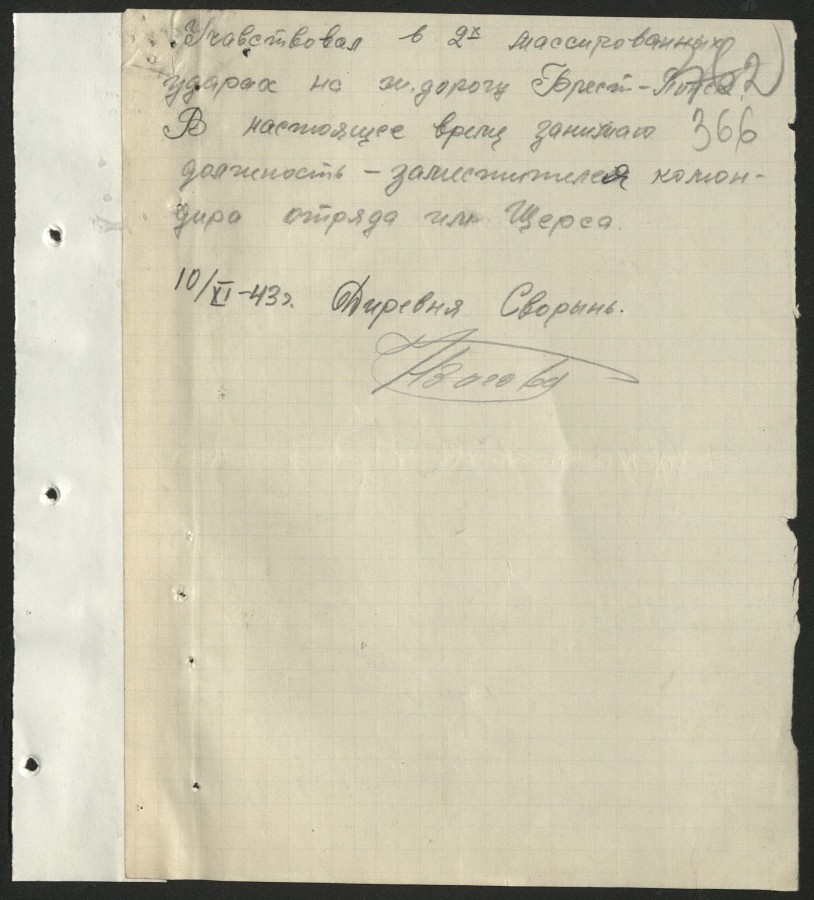 Учавствовал в 2х массированных
ударах на ж.дорогу Брест-
В настоящее время занимаю 366
должность - заместителея коман-
дира отряда им Щерса.
10/XI-43г. Диревня Сворынь.